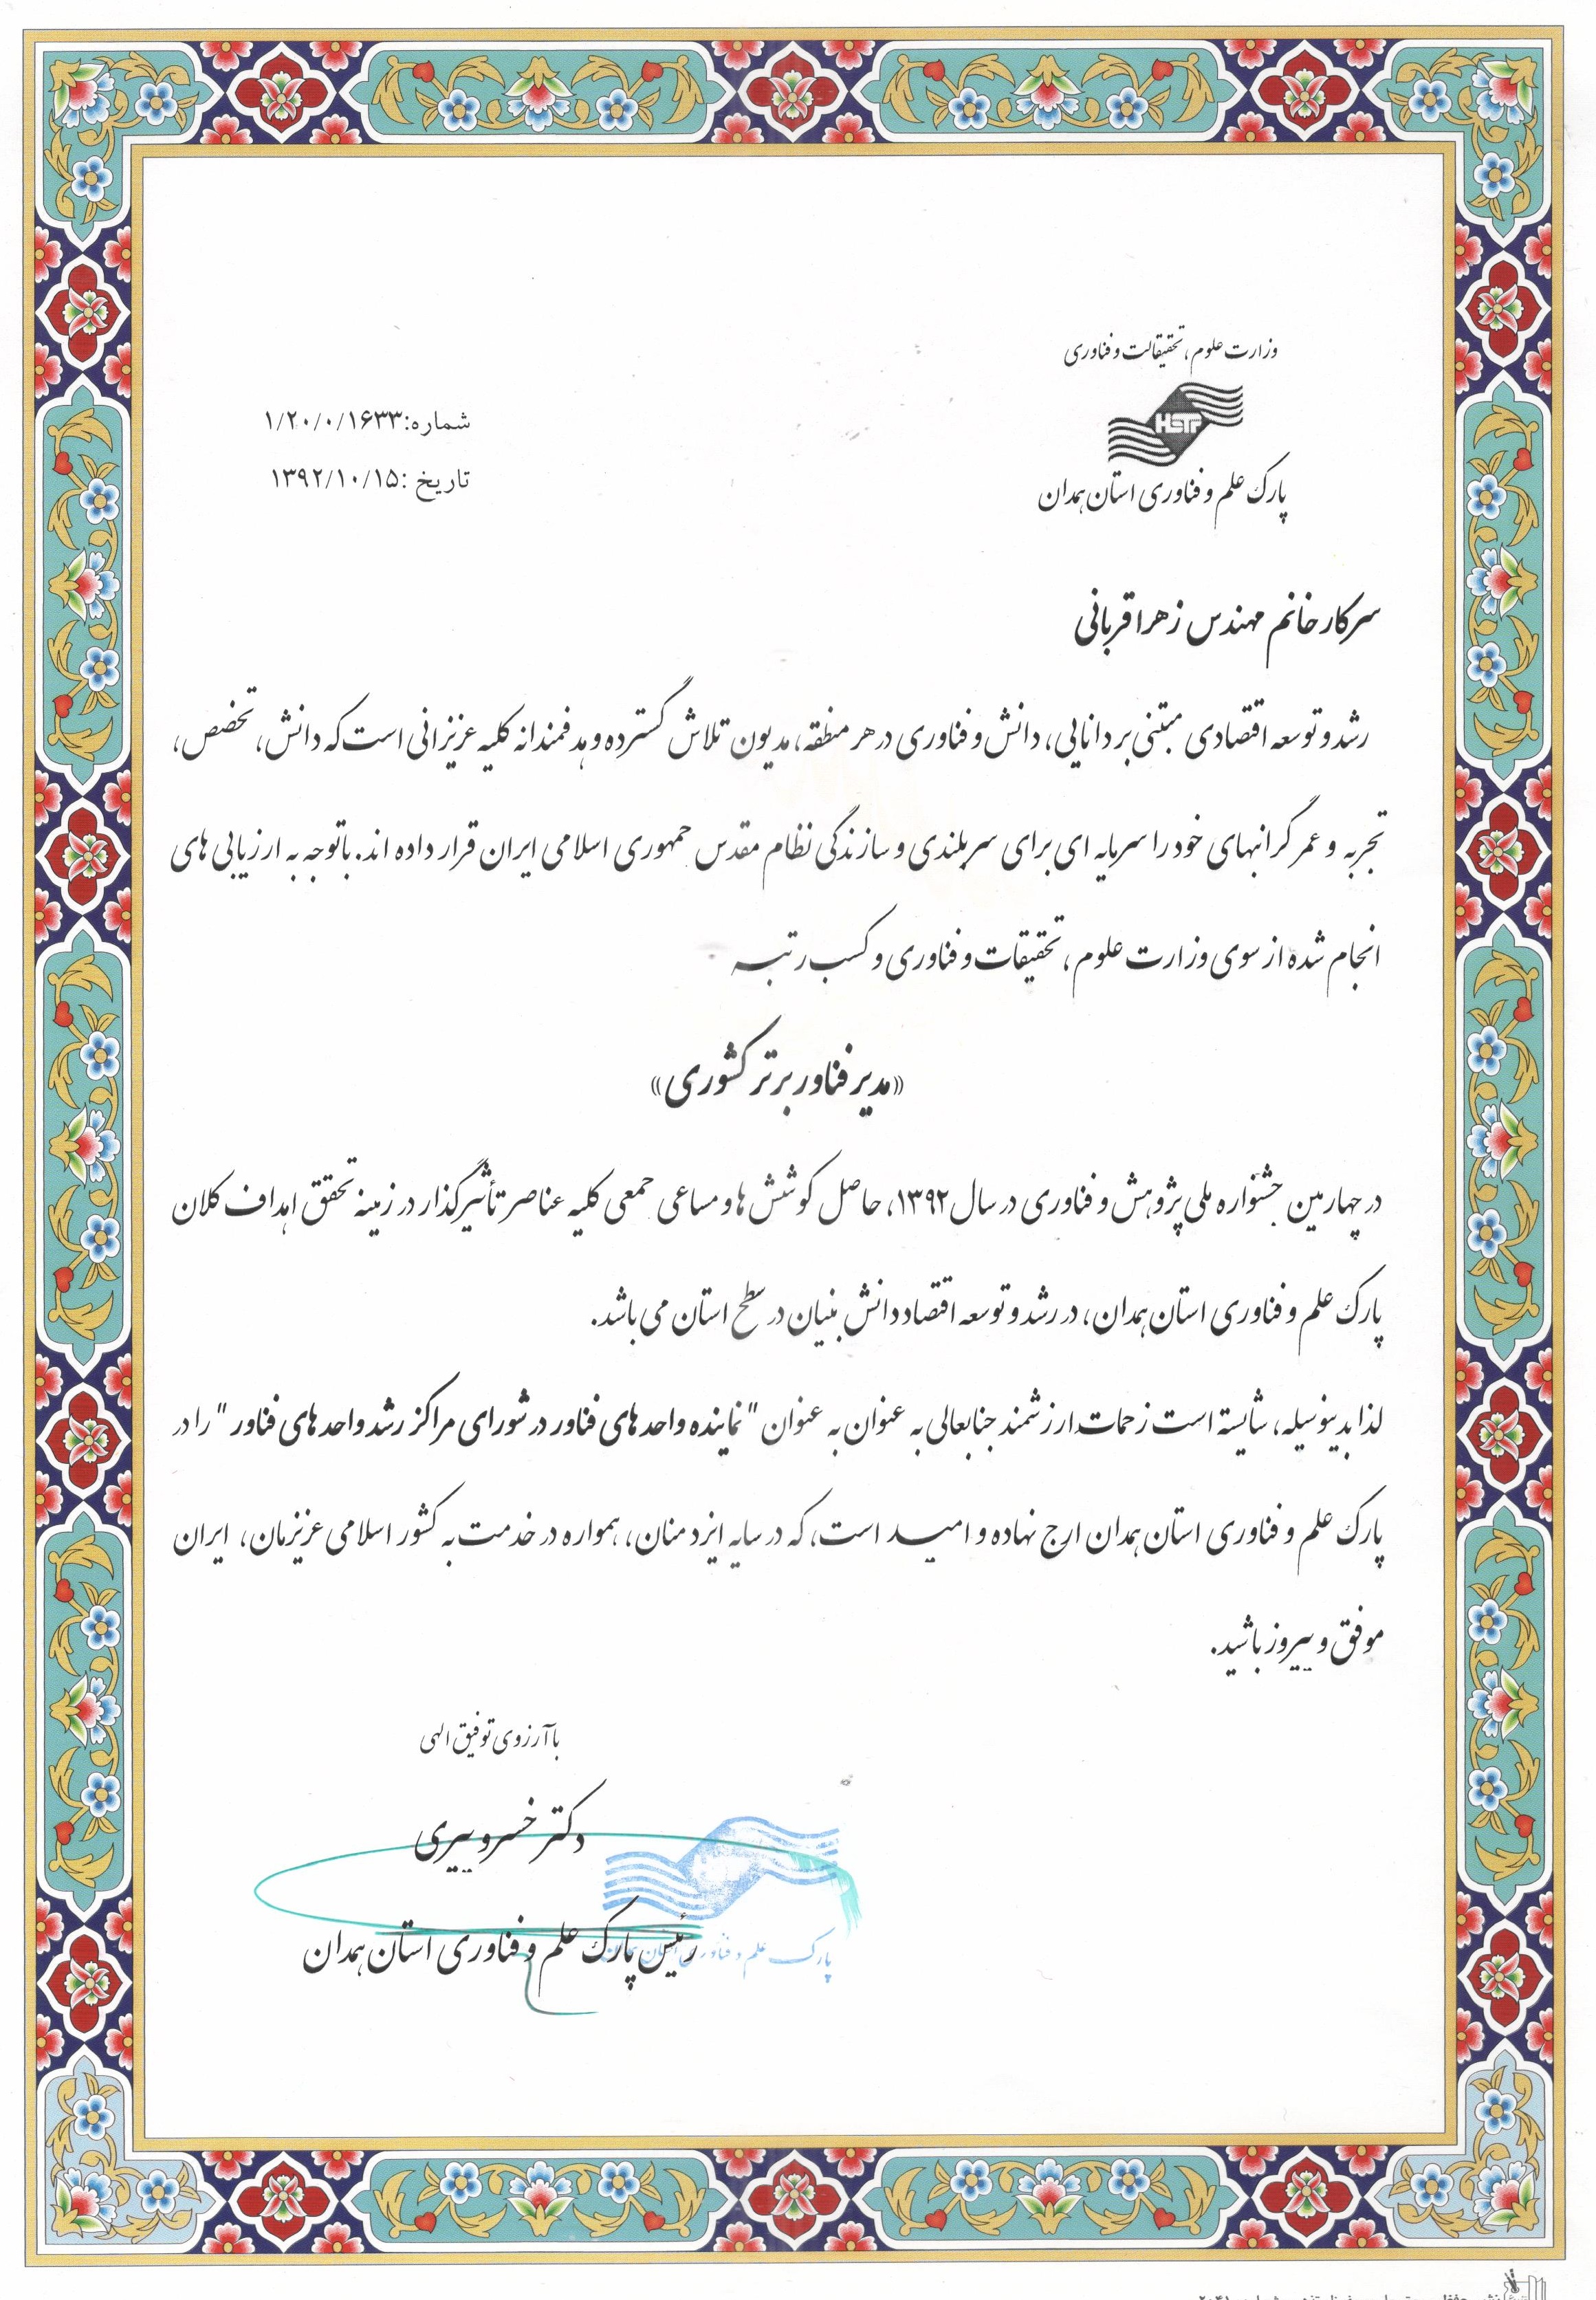 وزارت علوم، تحقیقالت و فناوری
HSTP
پارک علم و فناوری استان همدان
شماره:۱/۲۰/۰/۱۶۳۳
تاریخ :۱۳۹۲/۱۰/۱۵
سرکار خانم مهندس زهرا قربانی
رشد و توسعه اقتصادی مبتنی بر دانایی، دانش و فناوری در هر منطقه، مدیون تلاش گسترده و هدفمندانه کلیه عزیزانی است که دانش، تخصص،
تجربه و عمر گرانبهای خود را سرمایه ای برای سربلندی و سازندگی نظام مقدس جمهوری اسلامی ایران قرار داده اند. با توجه به ارزیابی های
انجام شده از سوی وزارت علوم، تحقیقات و فناوری و کسب رتبه
«مدیر فناور برتر کشوری»
در چهارمین جشنواره ملی پژوهش و فناوری در سال ۱۳۹۲، حاصل کوشش ها و مساعی جمعی کلیه عناصر تأثیرگذار در زمینه تحقق اهداف کلان
پارک علم و فناوری استان همدان، در رشد و توسعه اقتصاد دانش بنیان در سطح استان می باشد.
لذا بدینوسیله، شایسته است زحمات ارزشمند جنابعالی به عنوان به عنوان " نماینده واحدهای فناور در شورای مراکز رشد واحدهای فناور " را در
پارک علم و فناوری استان همدان ارج نهاده و امید است، که در سایه ایزد منان، همواره در خدمت به کشور اسلامی عزیزمان، ایران
موفق و پیروز باشید.
با آرزوی توفیق الهی
دکتر خسرو پیری
رئیس پارک علم و فناوری استان همدان
پارک علم و فناوری استان همدان